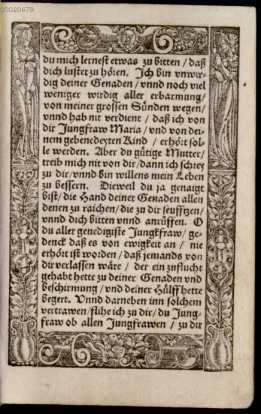 du mich lernest etwas zu bitten / daß
dich lustet zu hören. Ich bin vnwir-
dig deiner Genaden / vnnd noch viel
weniger wirdig aller erbarmung /
von meiner grossen Sünden wegen /
vnnd hab nit verdient / daß ich von
dir Jungfraw Maria / vnd von dei-
nem gebenedeyten Kind / erhört sol-
le werden. Aber du gütige Mutter /
treib mich nit von dir / dann ich schrey
zu dir / vnnd bin willens mein Leben
zu bessern. Dieweil du ja genaigt
bist / die Hand deiner Genaden allen
denen zu raichen / die zu dir seuffzen /
vnnd dich bitten vnnd anrüffen. O
du aller genedigiste Jungkfraw / ge-
denck daß es von ewigkeit an / nie
erhört ist worden / daß jemands von
dir verlassen wäre / der ein zuflucht
gehabt hette zu deiner Genaden vnd
beschirmung / vnd deiner Hülff hette
begert. Vnnd darneben inn solchem
vertrawen / flihe ich zu dir / du Jung-
fraw ob allen Jungfrawen / zu dir